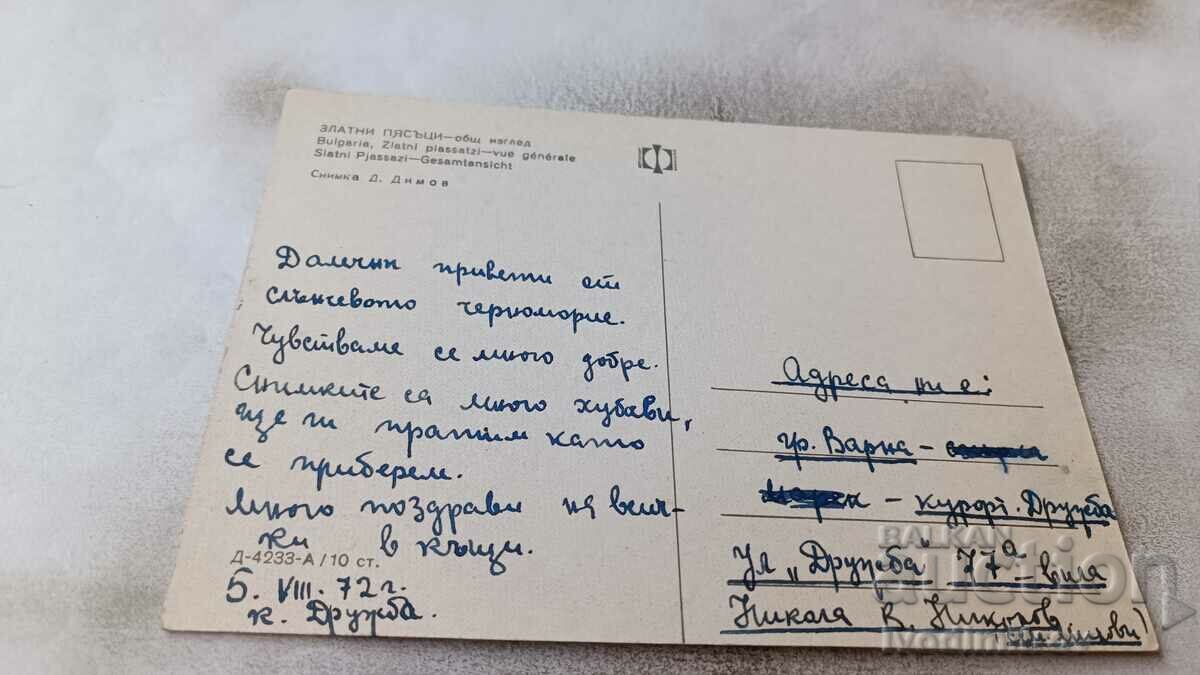 ЗЛАТНИ ПЯСЪЦИ—общ изглед
Bulgaria, Zlatni piassatzi—vue générale
Slatni Pjassazi—Gesamtansicht
Снимка Д. Димов
Далечни привети от
слънчевото черноморие.
Чувстваме се много добре.
Снимките са много хубави,
ще ги пратим като
се приберем.
Много поздрави на всич-
ки в къщи.
Д-4233-А/10 ст.
5. VIII. 72 г.
к. Дружба.
Адреса ни е:
гр. Варна -
- курорт. Дружба
ул „Дружба" 77а - вила
Никола В. Николов
BALKAN
auction